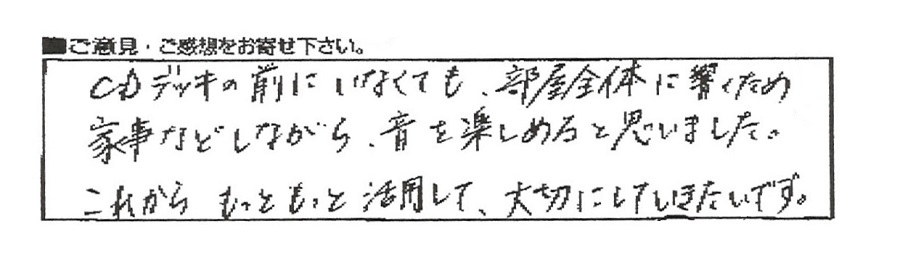 ■ご意見・ご感想をお寄せ下さい。
CDデッキの前にいなくても、部屋全体に響くため
家事などしながら、音を楽しめると思いました。
これから もっともっと 活用して、大切にしていきたいです。